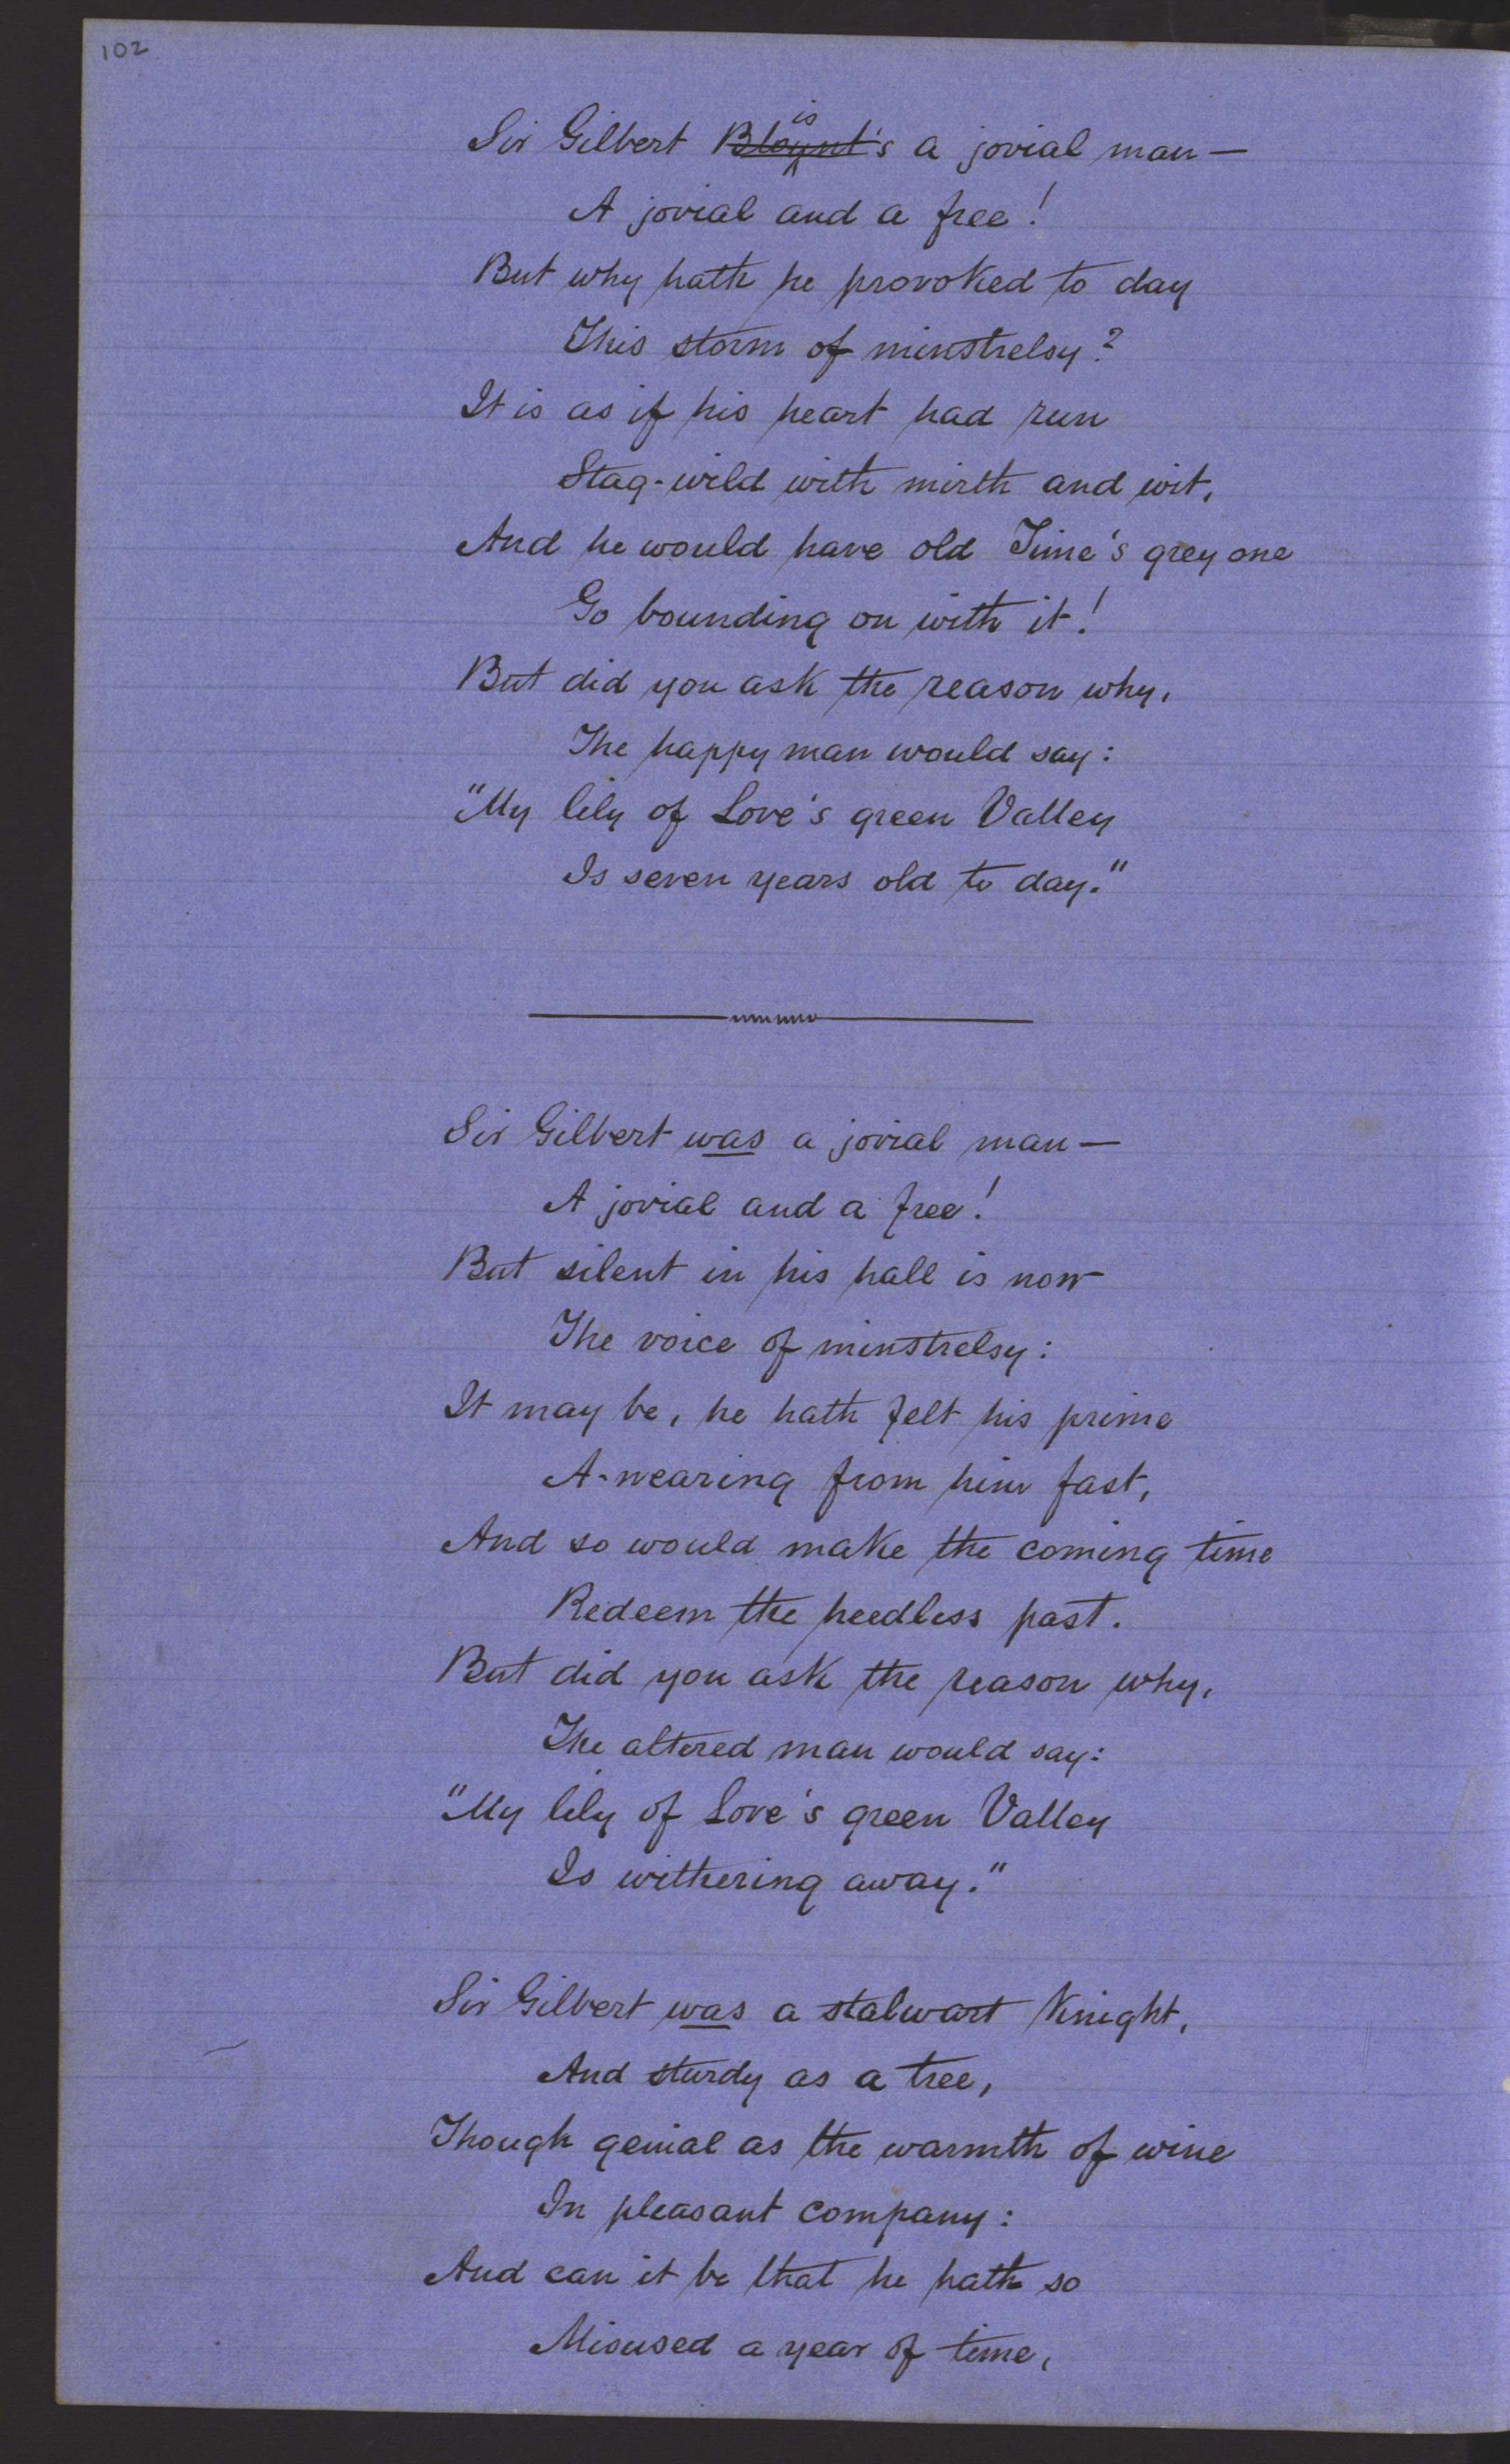 102
Sir Gilbert is Blount's a jovial man—
A jovial and a free!
But why hath he provoked to day
This storm of minstrelsy?
It is as if his heart had run
Stag-wild with mirth and wit,
And he would have old Time's grey one
Go bounding on with it!
But did you ask the reason why,
The happy man would say:
"My lily of Love's green Valley
Is seven years old to day."
Sir Gilbert was a jovial man—
A jovial and a free!
But silent in his hall is now
The voice of minstrelsy:
It may be, he hath felt his prime
A-wearing from him fast,
And so would make the coming time
Redeem the heedless past.
But did you ask the reason why,
The altered man would say:
"My lily of Love's green Valley
Is withering away."
Sir Gilbert was a stalwart Knight,
And sturdy as a tree,
Though genial as the warmth of wine
In pleasant company:
And can it be that he hath so
Misused a year of time,